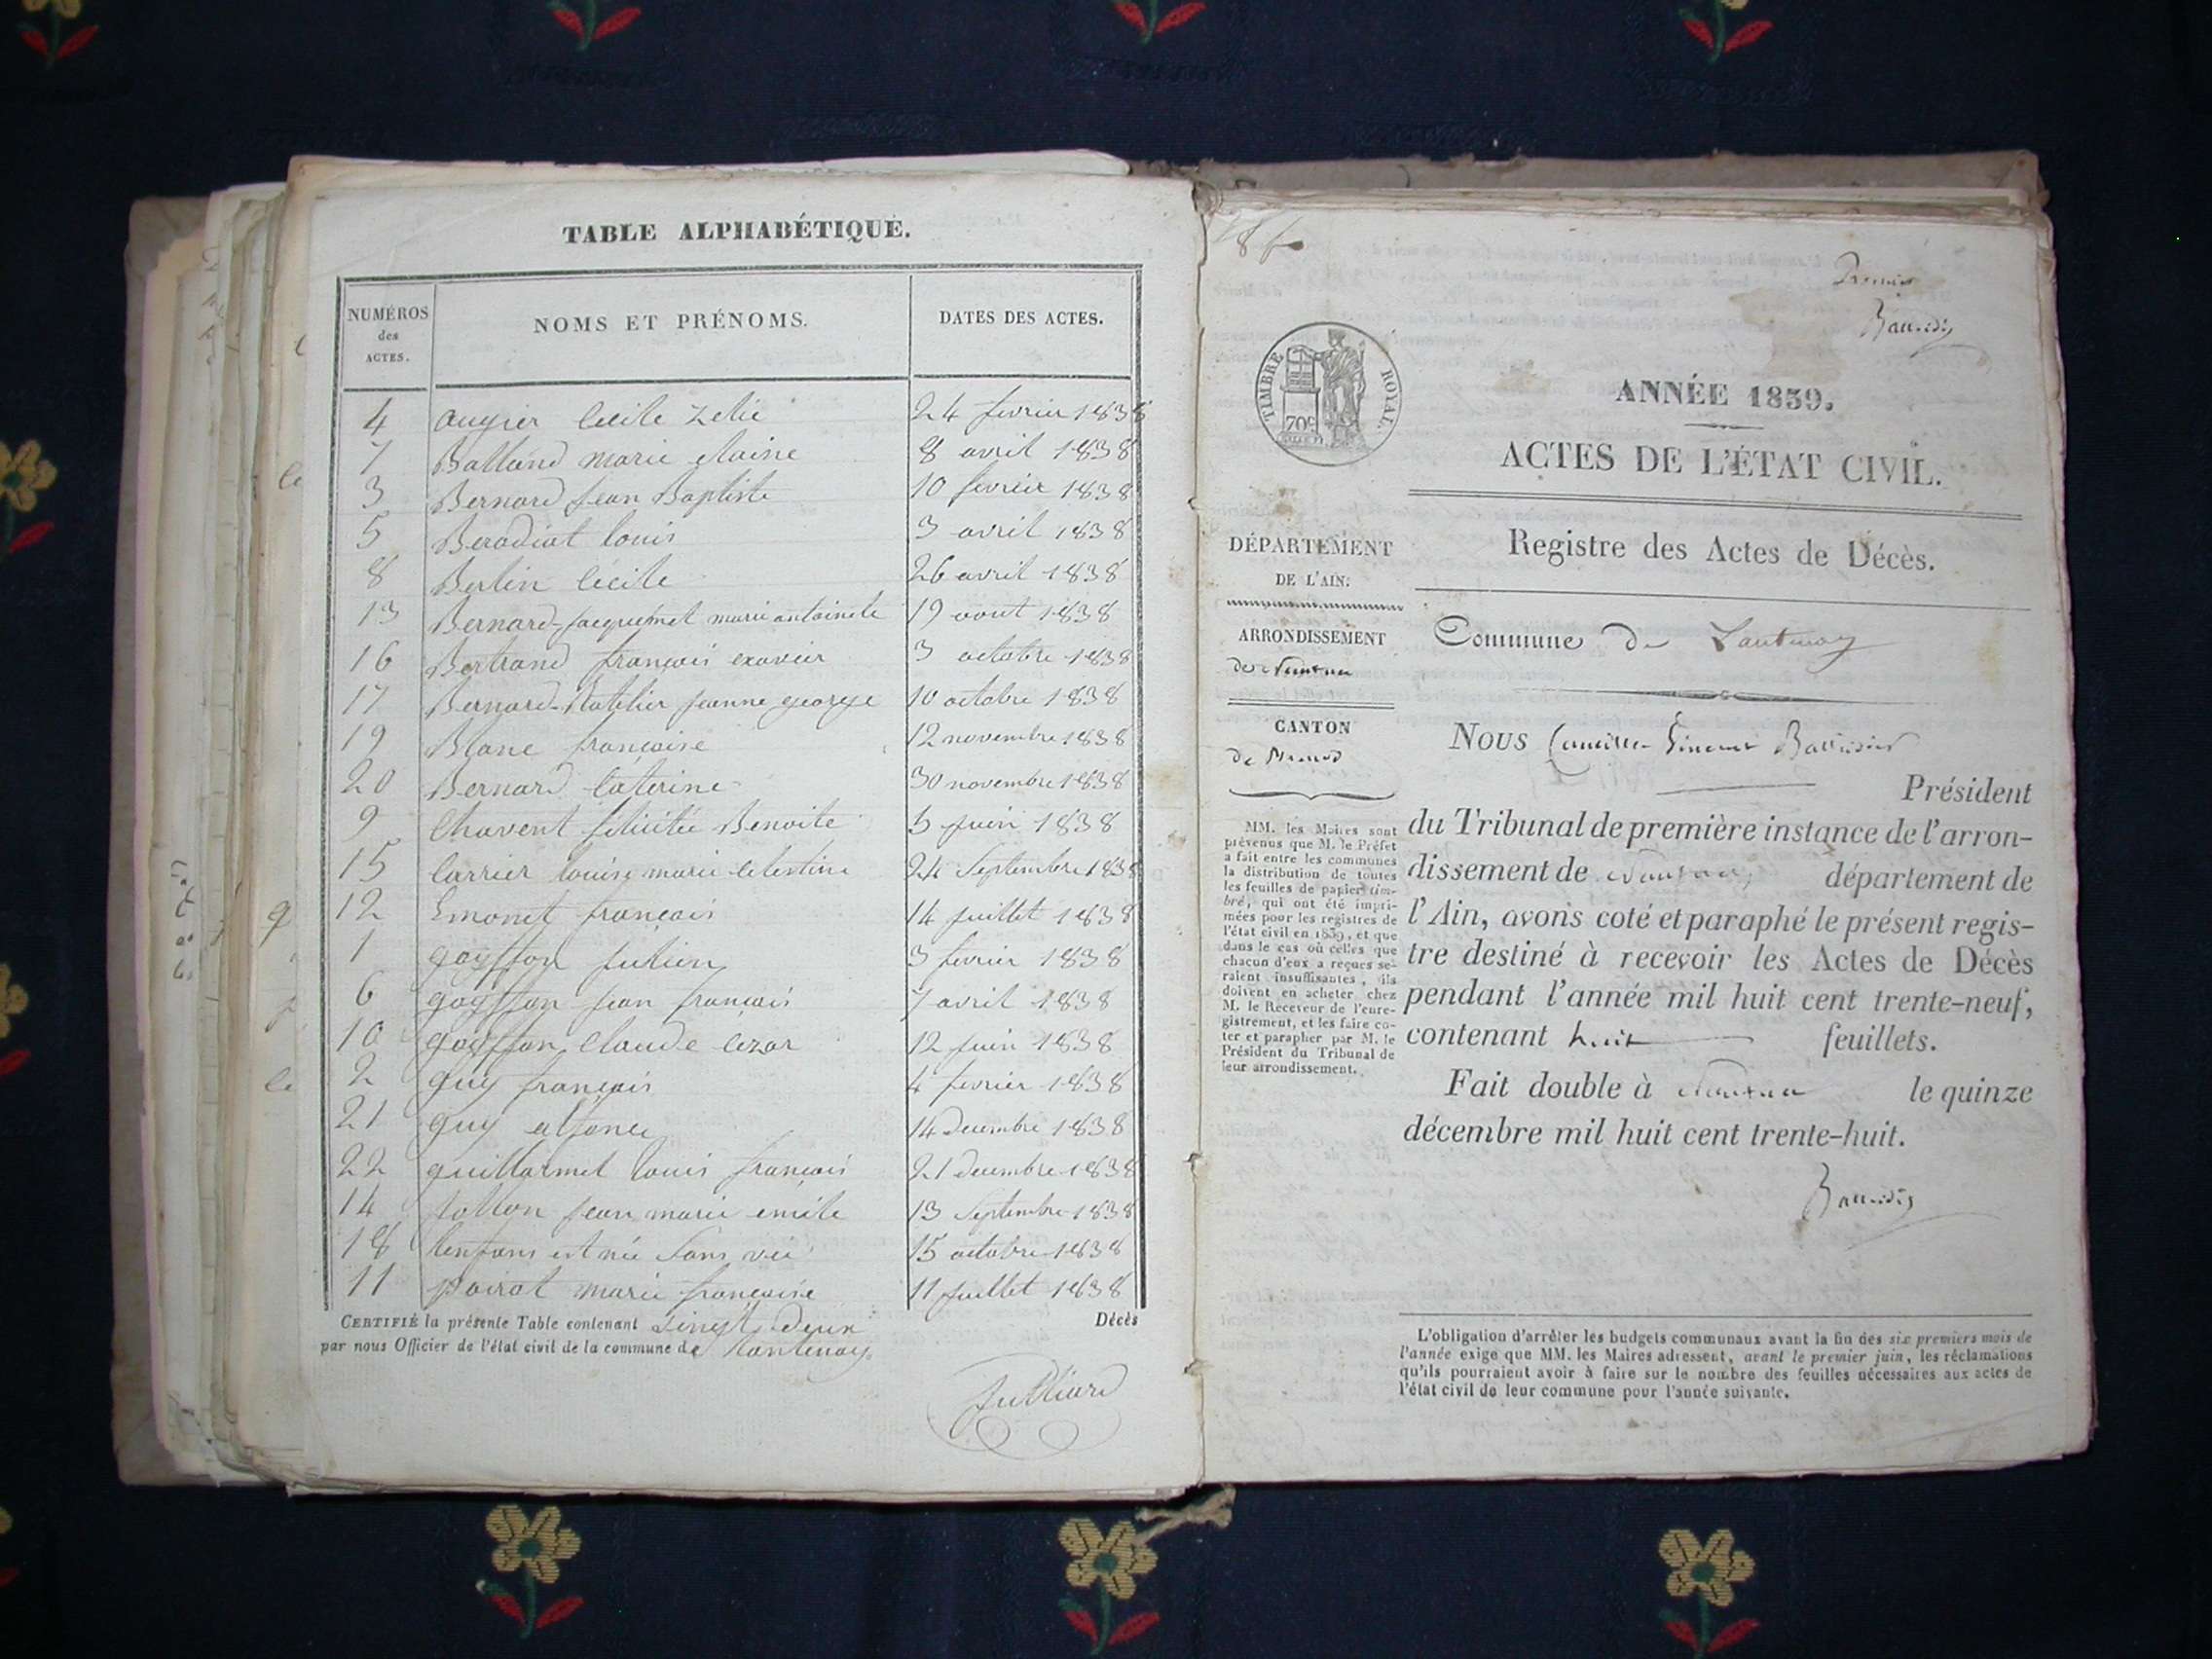 TABLE ALPHABÉTIQUE.
NUMÉROS des ACTES. NOMS ET PRÉNOMS. DATES DES ACTES.
4 augier Cecile Zelie 24 fevrier 1838
7 Balland marie claine 8 avril 1838
3 Bernard jean Baptiste 10 fevrier 1838
5 Berodiat louis 3 avril 1838
8 Berlin Cécile 26 avril 1838
13 Bernard-jacquemet marie antoinete 19 aout 1838
16 Bertrand françois exavier 3 octobre 1838
17 Bernard- jeanne george 10 octobre 1838
19 Blanc françoise 12 novembre 1838
20 Bernard Caterine 30 novembre 1838
9 Chavent félicitée Benoite 5 juin 1838
15 Carrier louise marie celestine 24 Septembre 1838
12 Emonet françois 14 juillet 1838
1 goyffon julien 3 fevrier 1838
6 goyffon jean françois 7 avril 1838
10 goyffon Claude Cezar 12 juin 1838
2 guy françois 4 fevrier 1838
21 guy alfonce 14 decembre 1838
22 guillermet louis françois 21 decembre 1838
14 jollon jean marie emile 13 Septembre 1838
18 lenfans est née sans vie 15 octobre 1838
11 poirot marie françoise 11 juillet 1838
CERTIFIÉ la présente Table contenant vingt-deux Décès
par nous Officier de l'état civil de la commune de Lantenay.
Julliard
Premier
ANNÉE 1839.
TIMBRE ROYAL.
70c
ACTES DE L'ÉTAT CIVIL.
Registre des Actes de Décès.
DÉPARTEMENT
DE L'AIN.
ARRONDISSEMENT
de Nantua
CANTON
de Brenod
MM. les Maires sont
prévenus que M. le Préfet
a fait entre les communes
la distribution de toutes
les feuilles de papier tim-
bré, qui ont été impri-
mées pour les registres de
l'état civil en 1839, et que
dans le cas où celles que
chacun d'eux a reçues se-
raient insuffisantes, ils
doivent en acheter chez
M. le Receveur de l'enre-
gistrement, et les faire co-
ter et parapher par M. le
Président du Tribunal de
leur arrondissement.
Commune de Lantenay
Nous Camille
Président
du Tribunal de première instance de l'arron-
dissement de Nantua, département de
l'Ain, avons coté et paraphé le présent regis-
tre destiné à recevoir les Actes de Décès
pendant l'année mil huit cent trente-neuf,
contenant huit feuillets.
Fait double à Nantua le quinze
décembre mil huit cent trente-huit.
L'obligation d'arrêter les budgets communaux avant la fin des six premiers mois de
l'année exige que MM. les Maires adressent, avant le premier juin, les réclamations
qu'ils pourraient avoir à faire sur le nombre des feuilles nécessaires aux actes de
l'état civil de leur commune pour l'année suivante.